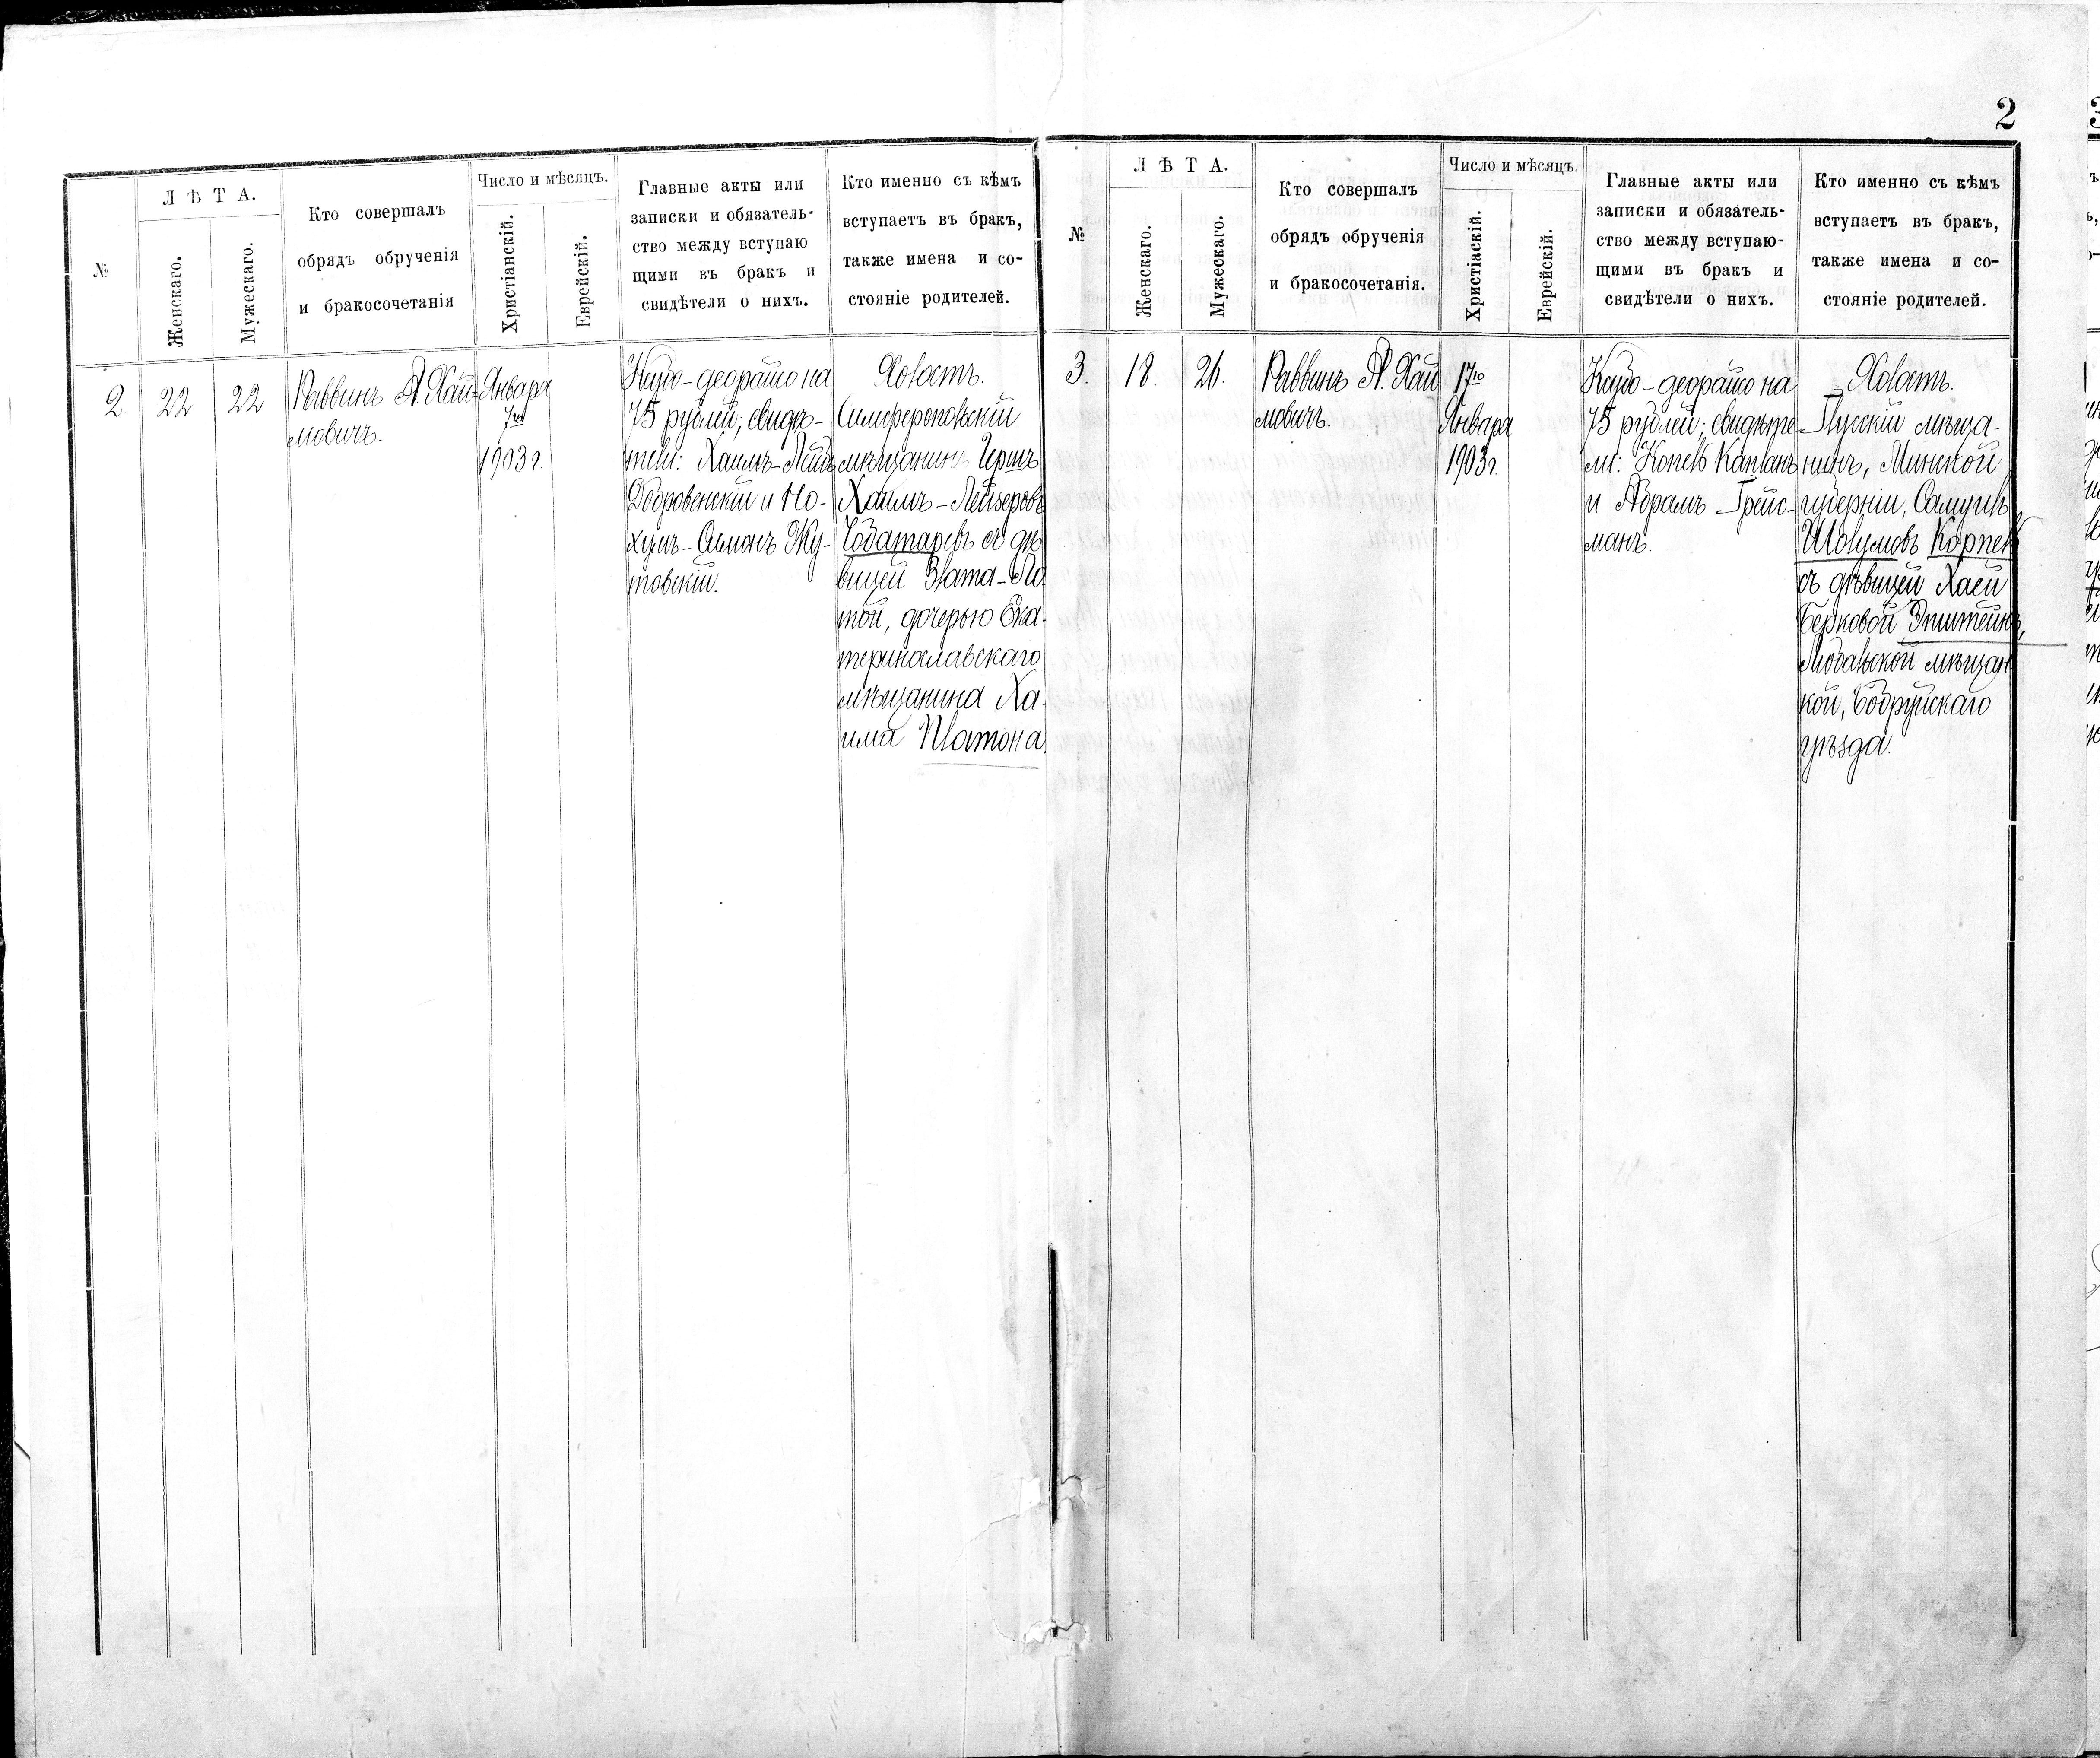 2
№
Л Ѣ Т А.
Женскаго.
Мужескаго.
Кто совершалъ
обрядъ обрученія
и бракосочетанія
Число и мѣсяцъ.
Христіанскій.
Еврейскій.
Главные акты или
записки и обязатель-
ство между вступаю
щими въ бракъ и
свидѣтели о нихъ.
Кто именно съ кѣмъ
вступаетъ въ бракъ,
также имена и со-
стояніе родителей.
2
22
22
Раввинъ А. Хай-
мовичъ.
Января
7го
1903 г.
на
75 рублей; свидѣ-
тели: Хаимъ-Лейб
Добровенскій и Но-
хумъ-Симонъ Жу-
товскій.
Холостъ.
Симферопольскій
мѣщанинъ Гершъ
Хаимъ-Лейзеровъ
съ дѣ
вицей Злата-По
той, дочерью Ека-
теринославскаго
мѣщанина Ха-
има Платона
№
Л Ѣ Т А.
Женскаго.
Мужескаго.
Кто совершалъ
обрядъ обрученія
и бракосочетанія.
Число и мѣсяцъ.
Христіанскій.
Еврейскій.
Главные акты или
записки и обязатель-
ство между вступаю-
щими въ бракъ и
свидѣтели о нихъ.
Кто именно съ кѣмъ
вступаетъ въ бракъ,
также имена и со-
стояніе родителей.
3.
18.
26.
Раввинъ А. Хай
мовичъ.
17го
Января
1903 г.
на
75 рублей; свидѣте
ли: Копель Капланъ
и Абрамъ Грейс-
манъ.
Холостъ.
мѣща-
нинъ, Минской
губерніи, Самуилъ
Шоломовъ Корпель
съ дѣвицей Хаей
Берковой Эпштейнъ,
мѣщан
кой, Бобруйскаго
уѣзда.